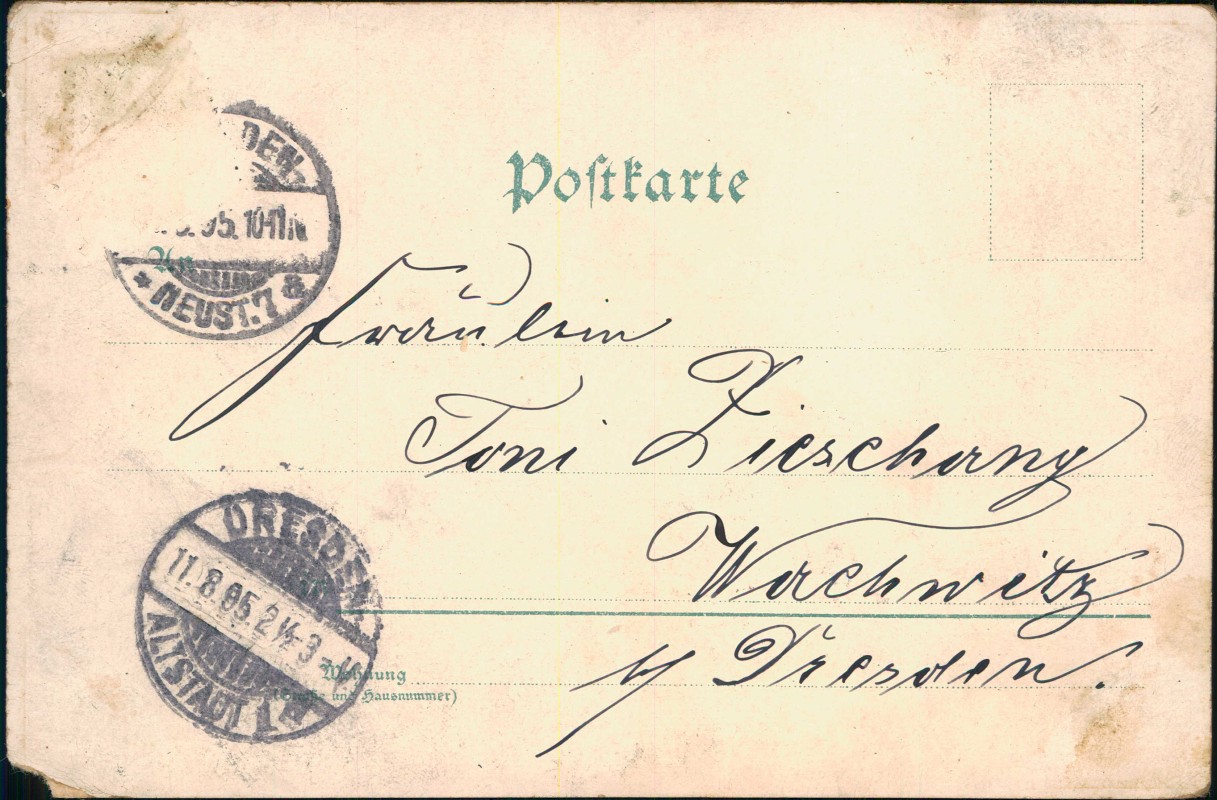 Postkarte
DEN
95. 10-11 N
An
* NEUST. 7 a
Fräulein
Toni Zieschang
Wachwitz
b/ Dresden.
DRESDEN
11.8.95. 2½-3
ALTSTADT 1
Wohnung
(Straße und Hausnummer)